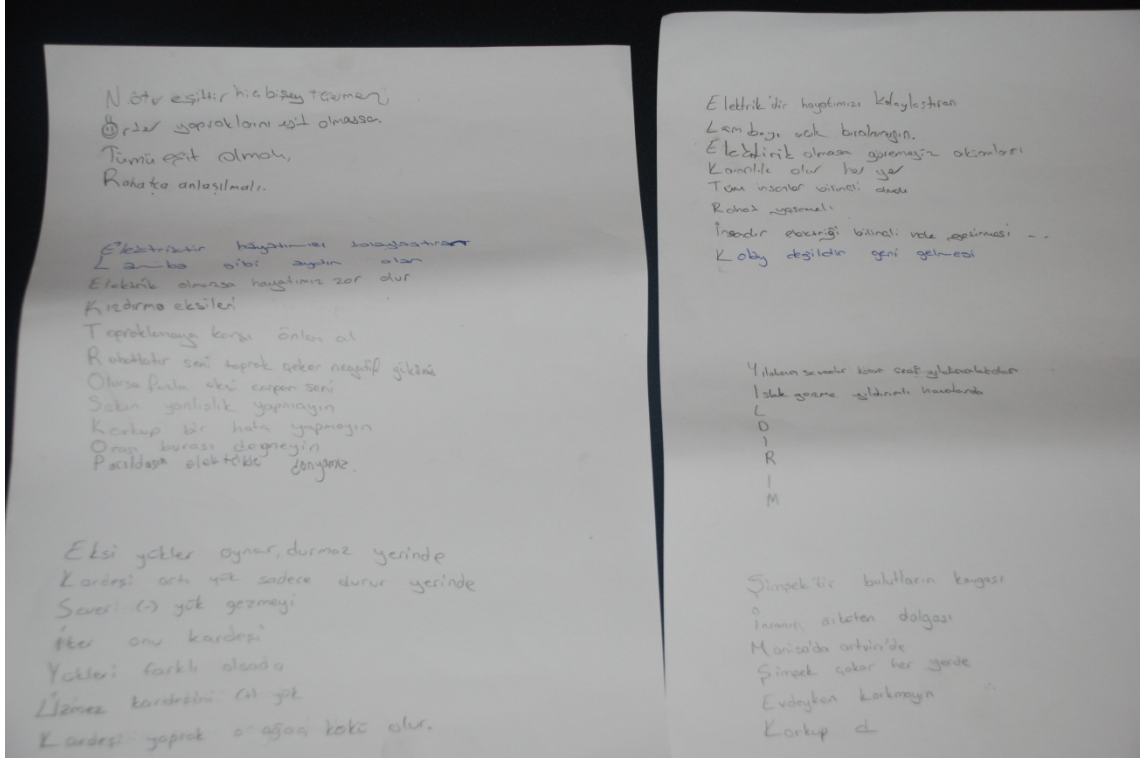 Nötr eşittir hiç bişey
Örter yapraklarını eşit olmassa.
Tümü eşit olmalı,
Rahatça anlaşılmalı.
Elektriktir hayatımızı kolaylaştıran
Lamba gibi aydın olan
Elektrik olmazsa hayatımız zor olur
Kızdırma eksileri
Topraklamaya karşı önlem al
Rahatlatır seni toprak çeker negatif yükünü
Olursa fazla yükü çarpar seni
Sakın yanlışlık yapmayın
Korkup bir hata yapmayın
Orası burası değmeyin
Parıldasın elektrikle dünyamız.
Eksi yükler oynar, durmaz yerinde
Kardeşi artı yük sadece durur yerinde
Sever (-) yük gezmeyi
İter onu kardeşi
Yükleri farklı olsada
Üzmez kardeşini (+) yük
Kardeşi yaprak o ağaç kökü olur.
Elektrik'dir hayatımızı kolaylaştıran
Lambayı açık bırakmayın.
Elektirik olmasa göremeyiz akşamları
Karanlık olur her yer
Tüm insanlar bilinçli
Rahat yaşamalı
elektriği bilinçli
Kolay değildir geri gelmesi
Islak gezme yıldırımlı havalarda
L
D
I
R
I
M
Şimşektir bulutların kavgası
dalgası
Manisa'da artvin'de
Şimşek çakar her yerde
Evdeyken korkmayın
Korkup d